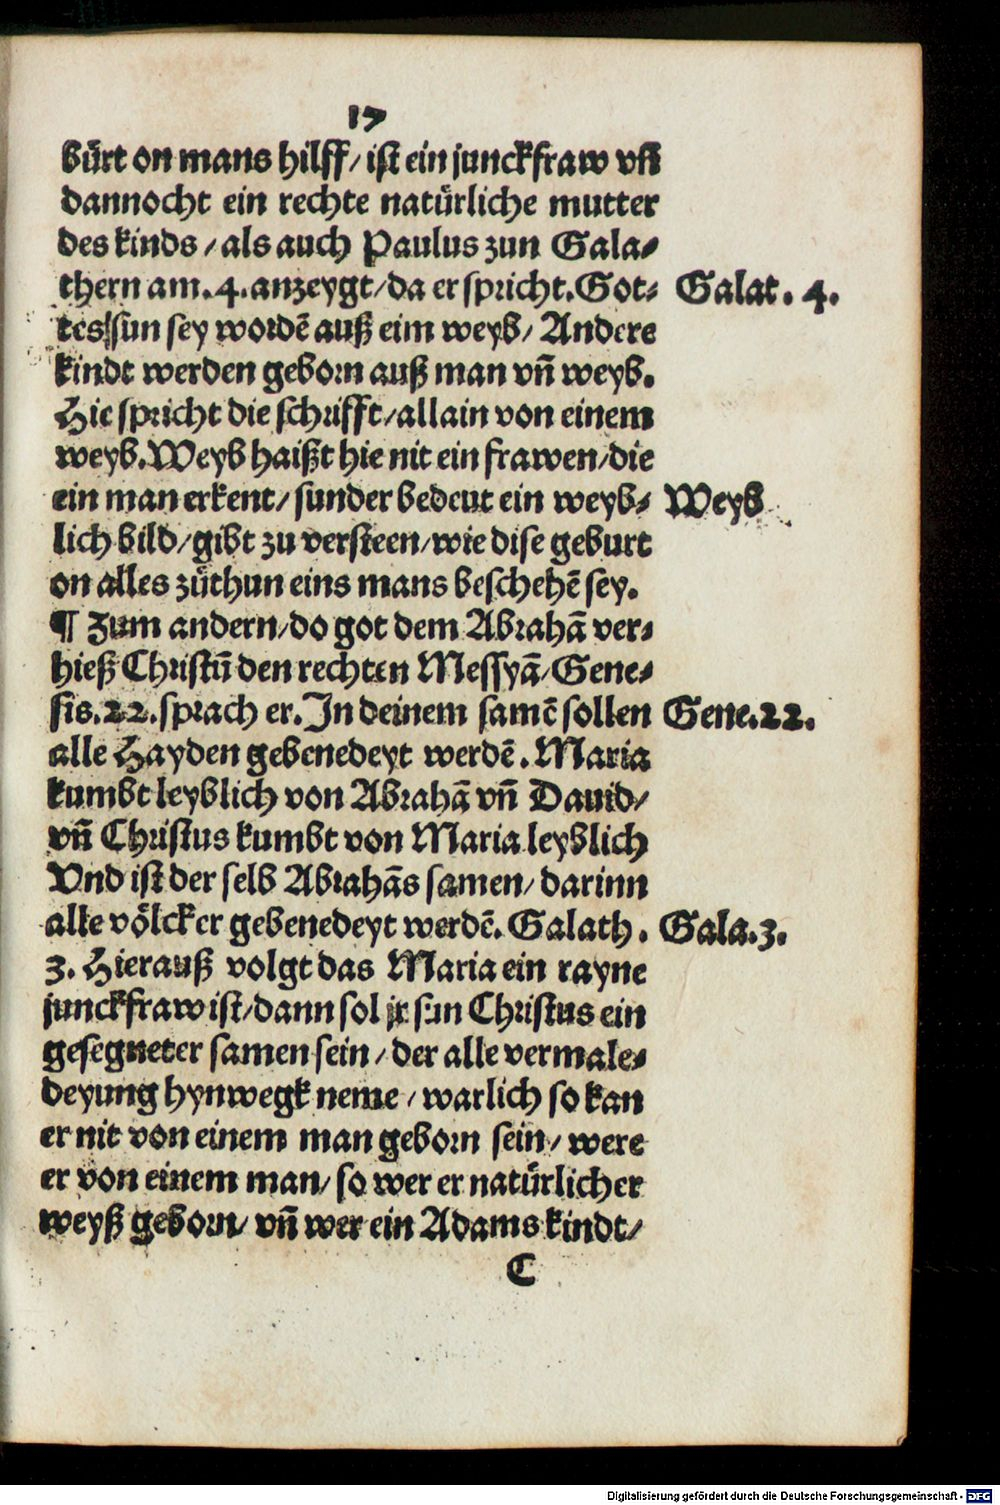 17
bürt on mans hilff/ ist ein junckfraw vñ
dannocht ein rechte natürliche mutter
des kinds/ als auch Paulus zun Gala⸗
thern am.4.anzeygt/da er spricht.Got⸗ Galat. 4.
tes sun sey wordē auß eim weyb/ Andere
kindt werden geborn auß man vñ weyb.
Hie spricht die schrifft/allain von einem
weyb.Weyb haißt hie nit ein frawen/die
ein man erkent/ sunder bedeut ein weyb⸗ Weyb
lich bild/gibt zu versteen/wie dise geburt
on alles zůthun eins mans beschehē sey.
¶ Zum andern/do got dem Abrahā ver⸗
hieß Christū den rechten Messyā/Gene⸗
sis.22.sprach er.In deinem samē sollen Gene.22.
alle Hayden gebenedeyt werdē.Maria
kumbt leyblich von Abrahā vñ Dauid/
vñ Christus kumbt von Maria leyblich
Vnd ist der selb Abrahās samen/ darinn
alle völcker gebenedeyt werdē. Galath. Gala.3.
3. Hierauß volgt das Maria ein rayne
junckfraw ist/dann sol jr sun Christus ein
gesegneter samen sein/ der alle vermale⸗
deyung hynwegk neme/ warlich so kan
er nit von einem man geborn sein/ were
er von einem man/ so wer er natürlicher
weyß geborn/ vñ wer ein Adams kindt/
C
Digitalisierung gefördert durch die Deutsche Forschungsgemeinschaft - DFG